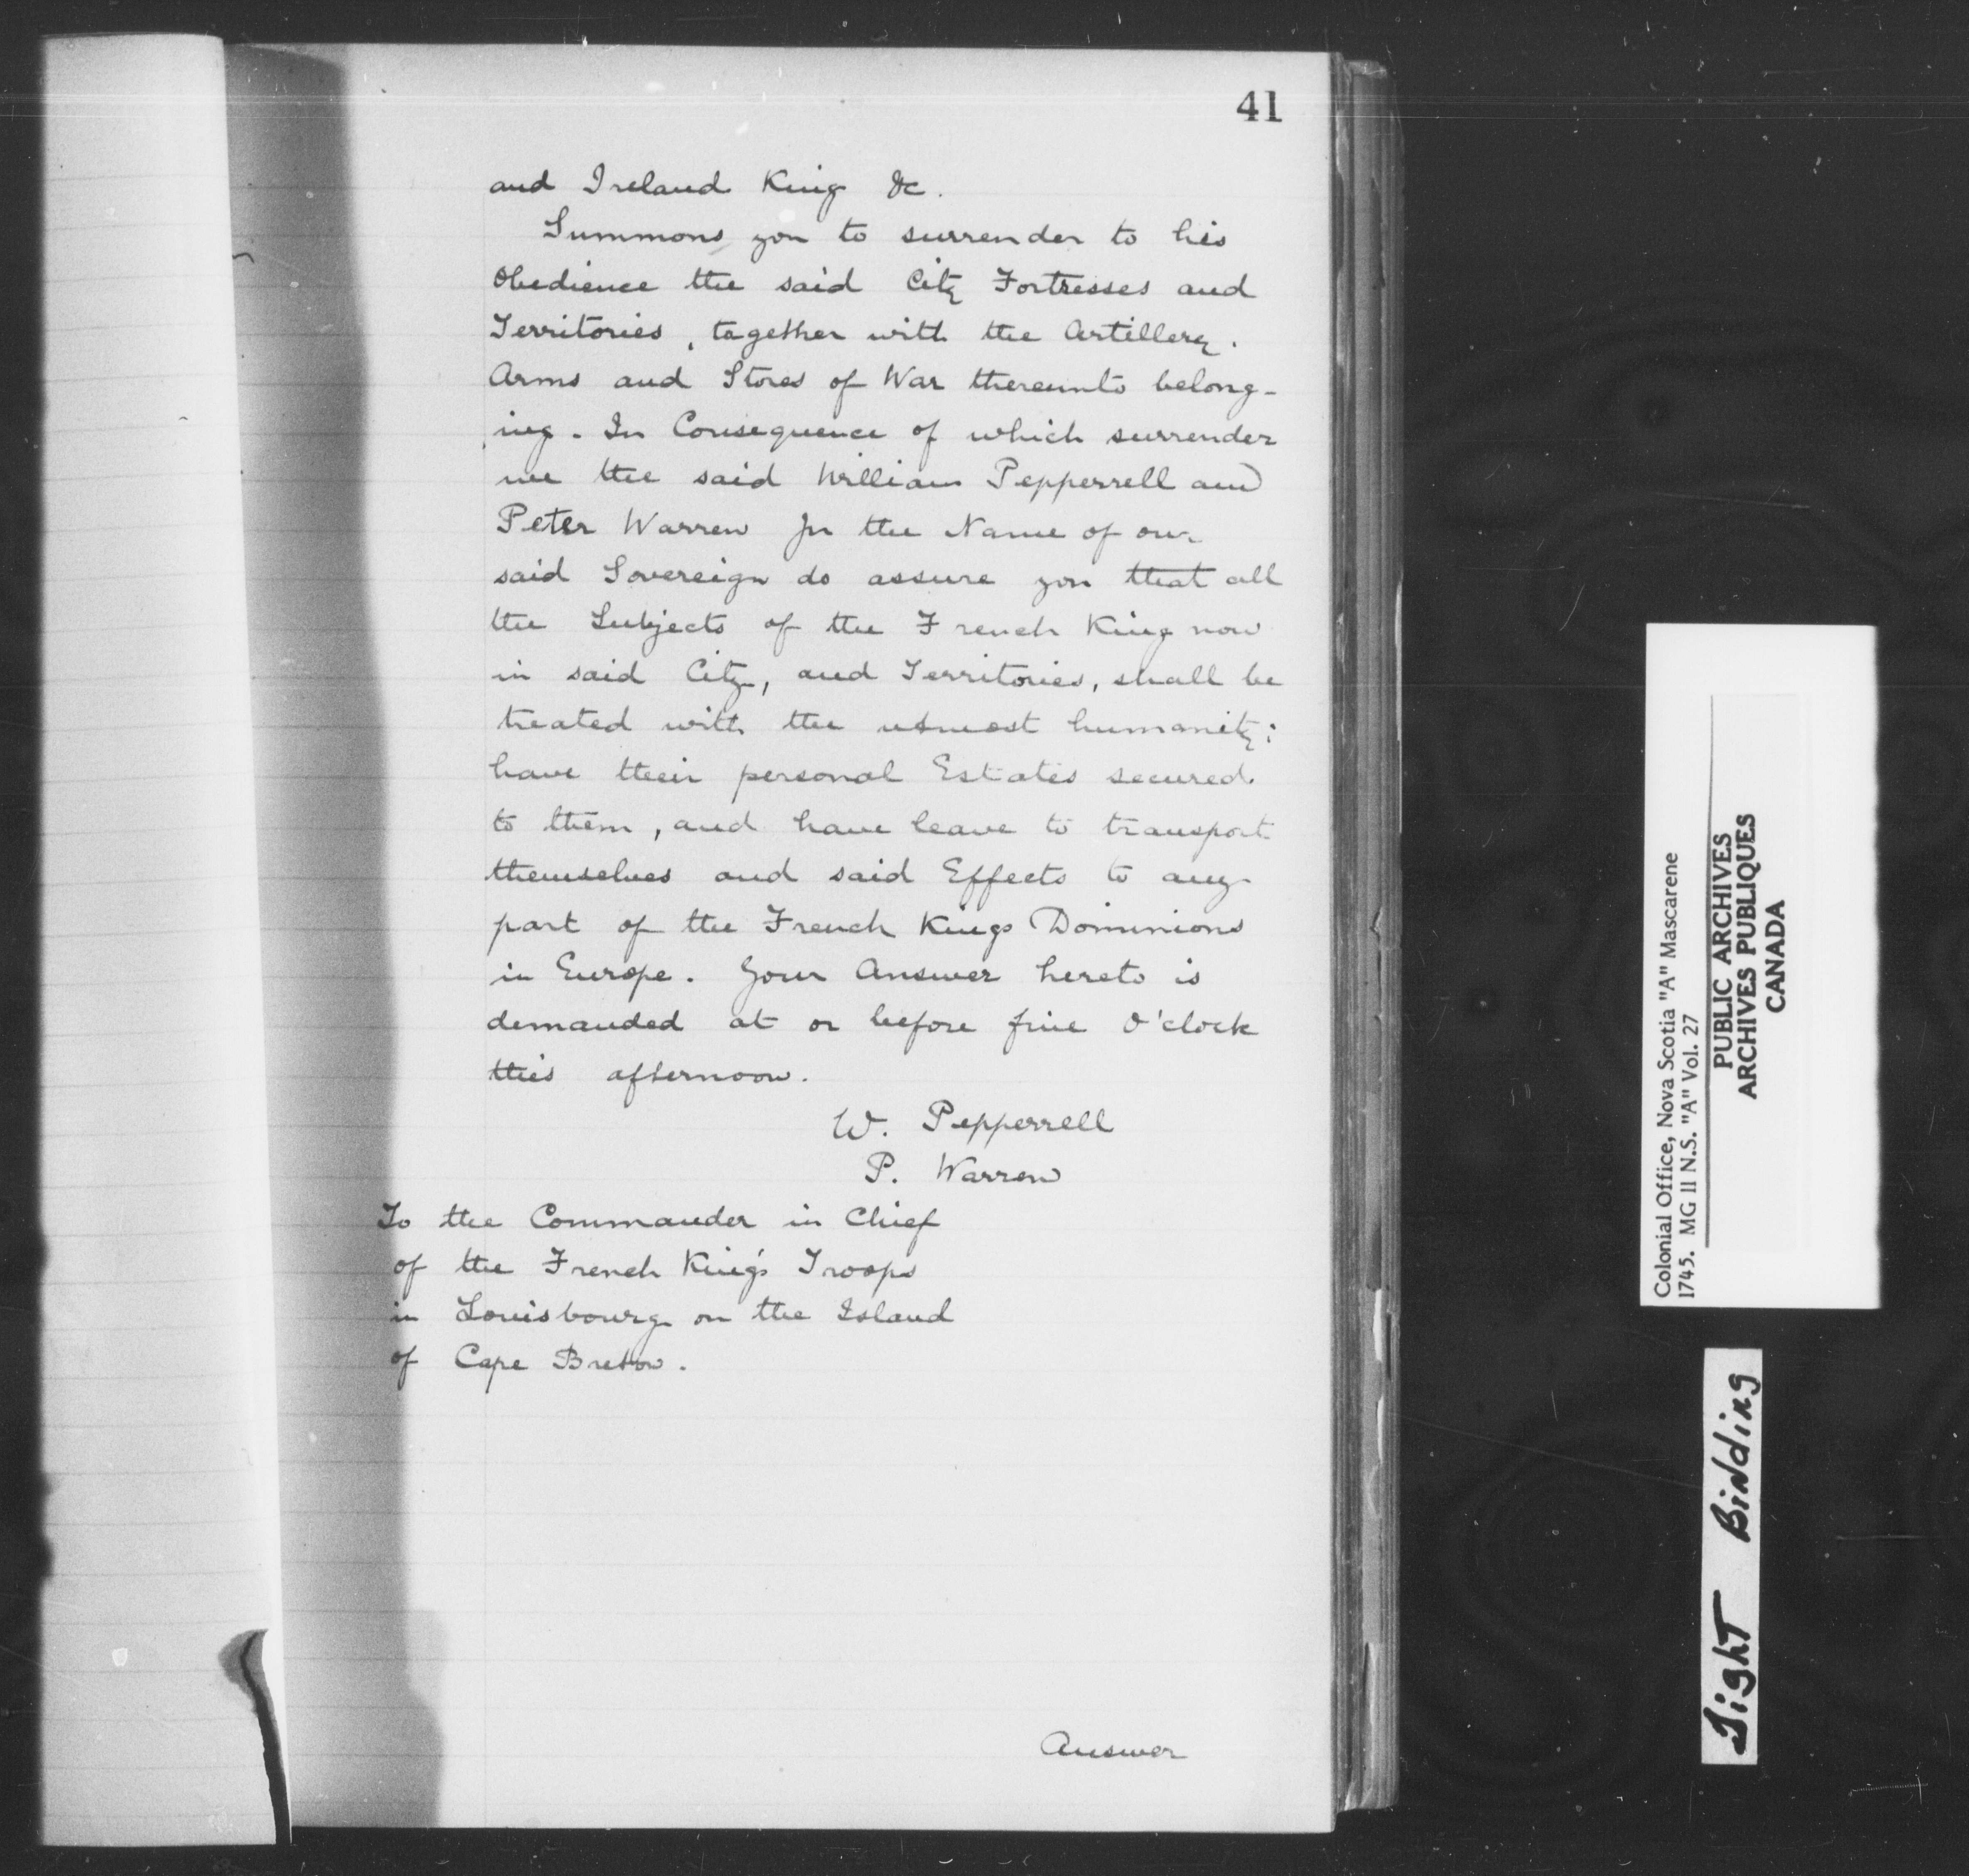 41
and Ireland King &c.
Summons you to surrender to his
Obedience the said City Fortresses and
Territories, together with the Artillery.
Arms and Stores of War thereunto belong-
ing. In Consequence of which surrender
we the said William Pepperrell and
Peter Warren In the Name of our
said Sovereign do assure you that all
the Subjects of the French King now
in said City, and Territories, shall be
treated with the utmost humanity;
have their personal Estates secured
to them, and have leave to transport
themselves and said Effects to any
part of the French Kings Dominions
in Europe. Your Answer hereto is
demanded at or before five O'clock
this afternoon.
W. Pepperrell
P. Warren
To the Commander in Chief
of the French King's Troops
in Louisbourg on the Island
of Cape Breton.
Answer
Colonial Office, Nova Scotia "A" Mascarene
1745. MG 11 N.S. "A" Vol. 27
PUBLIC ARCHIVES
ARCHIVES PUBLIQUES
CANADA
Tight Binding